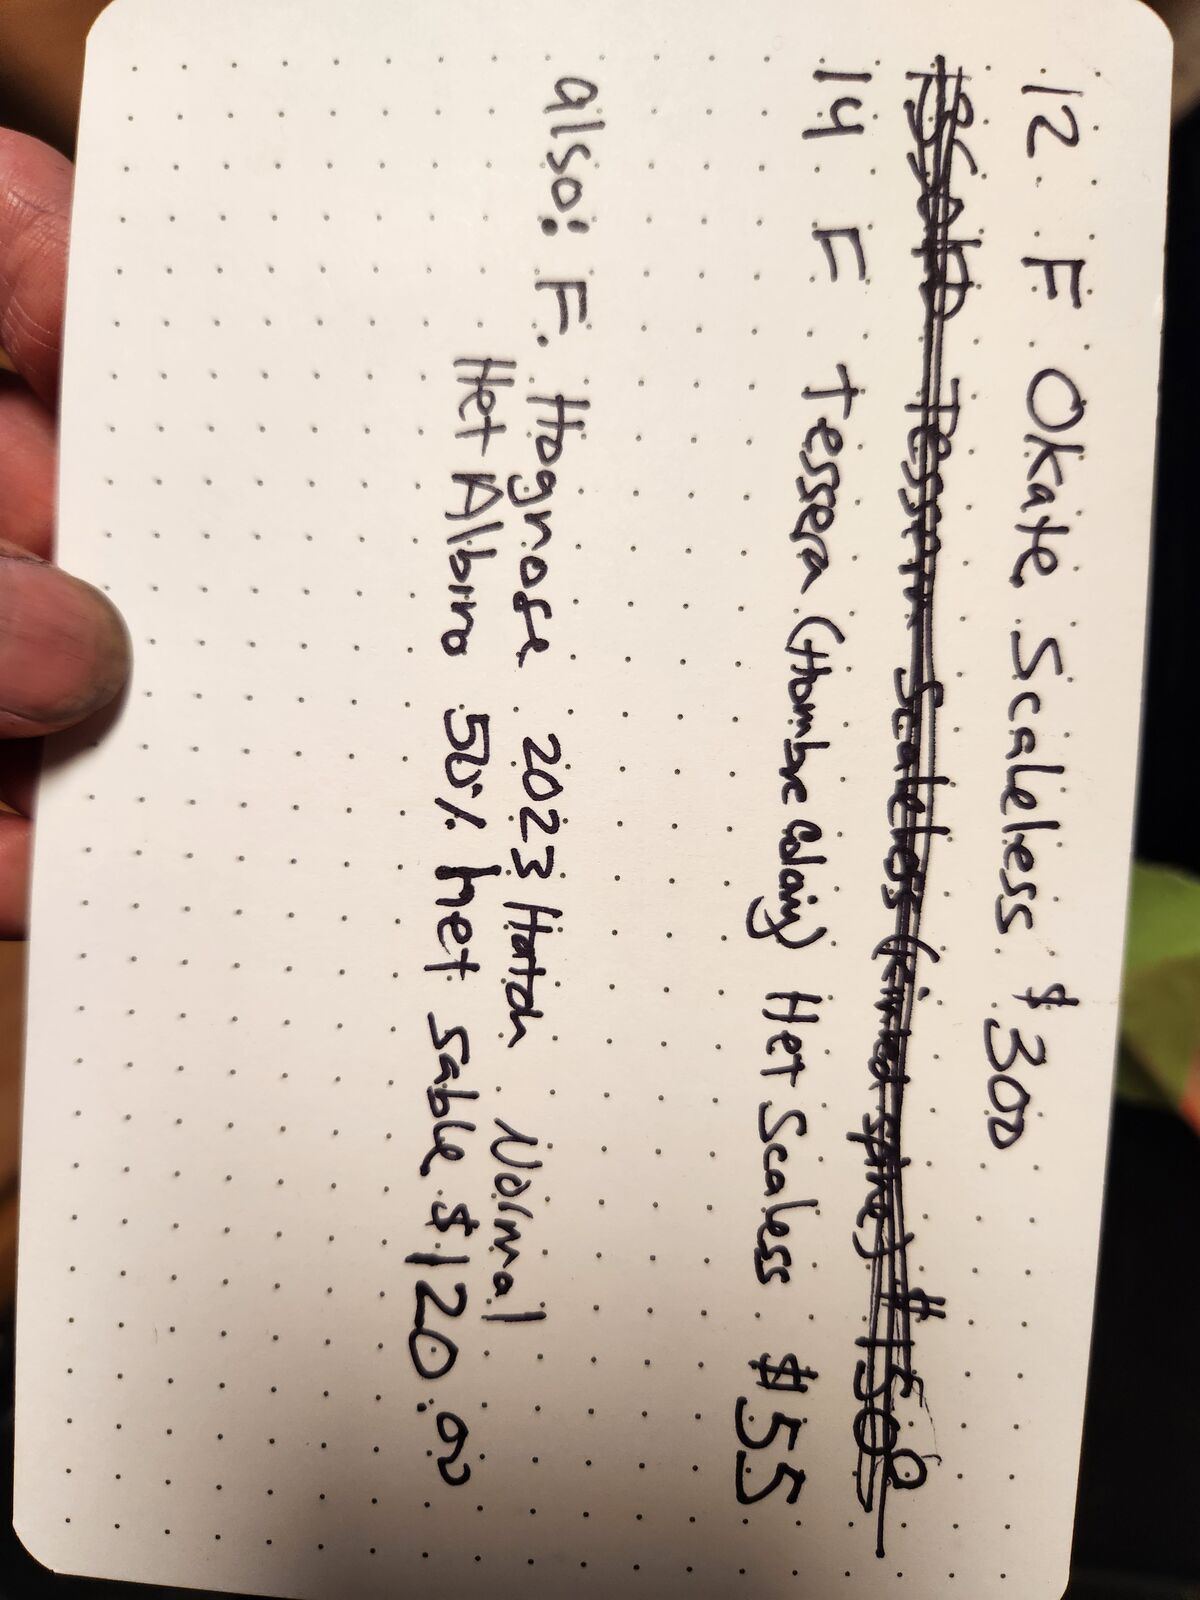 12 F Okate Scaleless $300
Tessera Scaleless (kinked spine) $150
14 F Tessera (Hombre Colaiy) Het Scaless $55
also: F. Hognose 2023 Hatch Normal
Het Albino 50% het sable $120.00